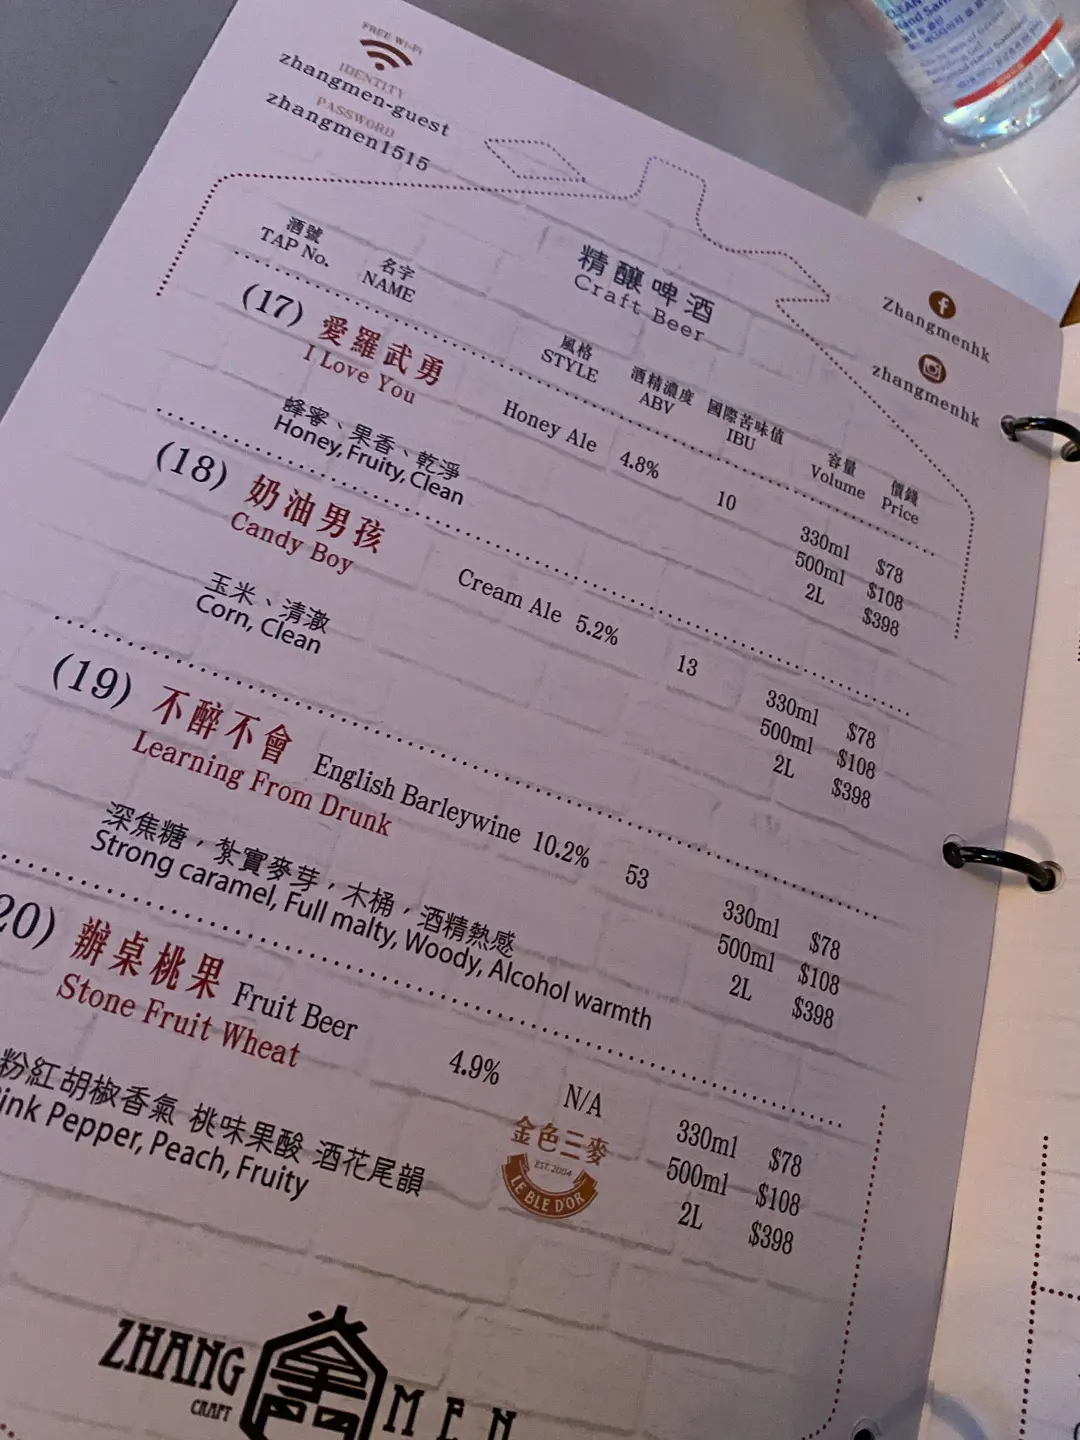 FREE Wi-Fi
IDENTITY
zhangmen-guest
PASSWORD
zhangmen1515
Zhangmenhk
zhangmenhk
精釀啤酒
Craft Beer
酒號 名字 風格 酒精濃度 國際苦味值 容量 價錢
TAP No. NAME STYLE ABV IBU Volume Price
(17) 愛羅武勇
I Love You
Honey Ale 4.8% 10
330ml $78
500ml $108
2L $398
蜂蜜、果香、乾淨
Honey, Fruity, Clean
(18) 奶油男孩
Candy Boy
Cream Ale 5.2% 13
330ml $78
500ml $108
2L $398
玉米、清澈
Corn, Clean
(19) 不醉不會
Learning From Drunk
English Barleywine 10.2% 53
330ml $78
500ml $108
2L $398
深焦糖，紮實麥芽，木桶，酒精熱感
Strong caramel, Full malty, Woody, Alcohol warmth
20) 辦桌桃果
Stone Fruit Wheat
Fruit Beer 4.9% N/A
330ml $78
500ml $108
2L $398
粉紅胡椒香氣 桃味果酸 酒花尾韻
ink Pepper, Peach, Fruity
金色三麥
EST. 2004
LE BLE D'OR
ZHANG MEN
CRAFT